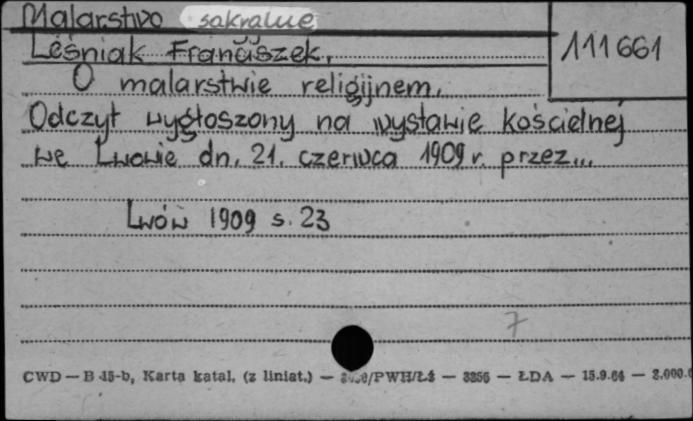 Malarstwo sakralne
111661
Leśniak Franciszek.
O malarstwie religijnem.
Odczyt wygłoszony na wystawie kościelnej
we Lwowie dn. 21. czerwca 1909 r. przez...
Lwów 1909 s. 23
7
CWD — B 15-b, Karta katal. (z liniat.) — /PWH/Łż — 3256 — ŁDA — 15.9.64 — 2.000.0